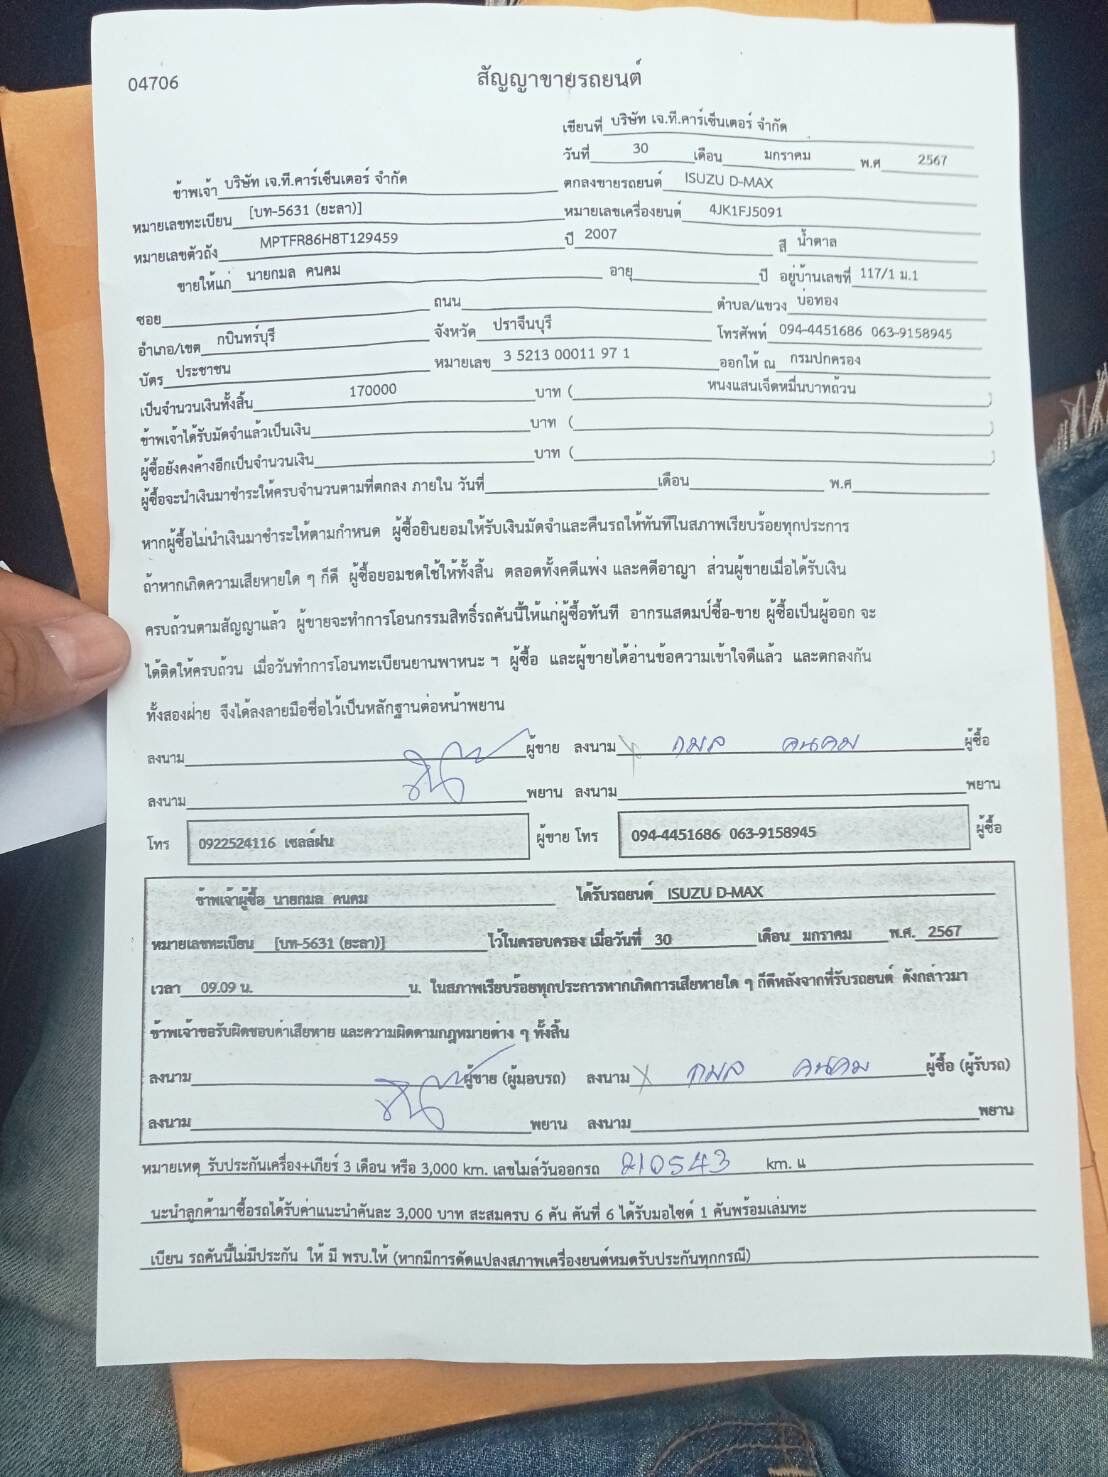 04706
สัญญาขายรถยนต์
เขียนที่ บริษัท เจ.ที.คาร์เซ็นเตอร์ จำกัด
วันที่ 30 เดือน มกราคม พ.ศ 2567
ข้าพเจ้า บริษัท เจ.ที.คาร์เซ็นเตอร์ จำกัด ตกลงขายรถยนต์ ISUZU D-MAX
หมายเลขทะเบียน [บท-5631 (ยะลา)] หมายเลขเครื่องยนต์ 4JK1FJ5091
หมายเลขตัวถัง MPTFR86H8T129459 ปี 2007 สี น้ำตาล
ขายให้แก่ นายกมล คนคม อายุ ปี อยู่บ้านเลขที่ 117/1 ม.1
ซอย ถนน ตำบล/แขวง บ่อทอง
อำเภอ/เขต กบินทร์บุรี จังหวัด ปราจีนบุรี โทรศัพท์ 094-4451686 063-9158945
บัตร ประชาชน หมายเลข 3 5213 00011 97 1 ออกให้ ณ กรมปกครอง
เป็นจำนวนเงินทั้งสิ้น 170000 บาท ( หนงแสนเจ็ดหมื่นบาทถ้วน )
ข้าพเจ้าได้รับมัดจำแล้วเป็นเงิน บาท ( )
ผู้ซื้อยังคงค้างอีกเป็นจำนวนเงิน บาท ( )
ผู้ซื้อจะนำเงินมาชำระให้ครบจำนวนตามที่ตกลง ภายใน วันที่ เดือน พ.ศ
หากผู้ซื้อไม่นำเงินมาชำระให้ตามกำหนด ผู้ซื้อยินยอมให้รับเงินมัดจำและคืนรถให้ทันทีในสภาพเรียบร้อยทุกประการ
ถ้าหากเกิดความเสียหายใด ๆ ก็ดี ผู้ซื้อยอมชดใช้ให้ทั้งสิ้น ตลอดทั้งคดีแพ่ง และคดีอาญา ส่วนผู้ขายเมื่อได้รับเงิน
ครบถ้วนตามสัญญาแล้ว ผู้ขายจะทำการโอนกรรมสิทธิ์รถคันนี้ให้แก่ผู้ซื้อทันที อากรแสตมป์ซื้อ-ขาย ผู้ซื้อเป็นผู้ออก จะ
ได้ติดให้ครบถ้วน เมื่อวันทำการโอนทะเบียนยานพาหนะ ฯ ผู้ซื้อ และผู้ขายได้อ่านข้อความเข้าใจดีแล้ว และตกลงกัน
ทั้งสองฝ่าย จึงได้ลงลายมือชื่อไว้เป็นหลักฐานต่อหน้าพยาน
ลงนาม ผู้ขาย ลงนาม x กมล คนคม ผู้ซื้อ
ลงนาม พยาน ลงนาม พยาน
โทร 0922524116 เซลล์ฝน ผู้ขาย โทร 094-4451686 063-9158945 ผู้ซื้อ
ข้าพเจ้าผู้ซื้อ นายกมล คนคม ได้รับรถยนต์ ISUZU D-MAX
หมายเลขทะเบียน [บท-5631 (ยะลา)] ไว้ในครอบครอง เมื่อวันที่ 30 เดือน มกราคม พ.ศ. 2567
เวลา 09.09 น. น. ในสภาพเรียบร้อยทุกประการหากเกิดการเสียหายใด ๆ ก็ดีหลังจากที่รับรถยนต์ ดังกล่าวมา
ข้าพเจ้าขอรับผิดชอบค่าเสียหาย และความผิดตามกฎหมายต่าง ๆ ทั้งสิ้น
ลงนาม ผู้ขาย (ผู้มอบรถ) ลงนาม x กมล คนคม ผู้ซื้อ (ผู้รับรถ)
ลงนาม พยาน ลงนาม พยาน
หมายเหตุ รับประกันเครื่อง+เกียร์ 3 เดือน หรือ 3,000 km. เลขไมล์วันออกรถ 210543 km. แ
นะนำลูกค้ามาซื้อรถได้รับค่าแนะนำคันละ 3,000 บาท สะสมครบ 6 คัน คันที่ 6 ได้รับมอไซด์ 1 คันพร้อมเล่มทะ
เบียน รถคันนี้ไม่มีประกัน ให้ มี พรบ.ให้ (หากมีการดัดแปลงสภาพเครื่องยนต์หมดรับประกันทุกกรณี)